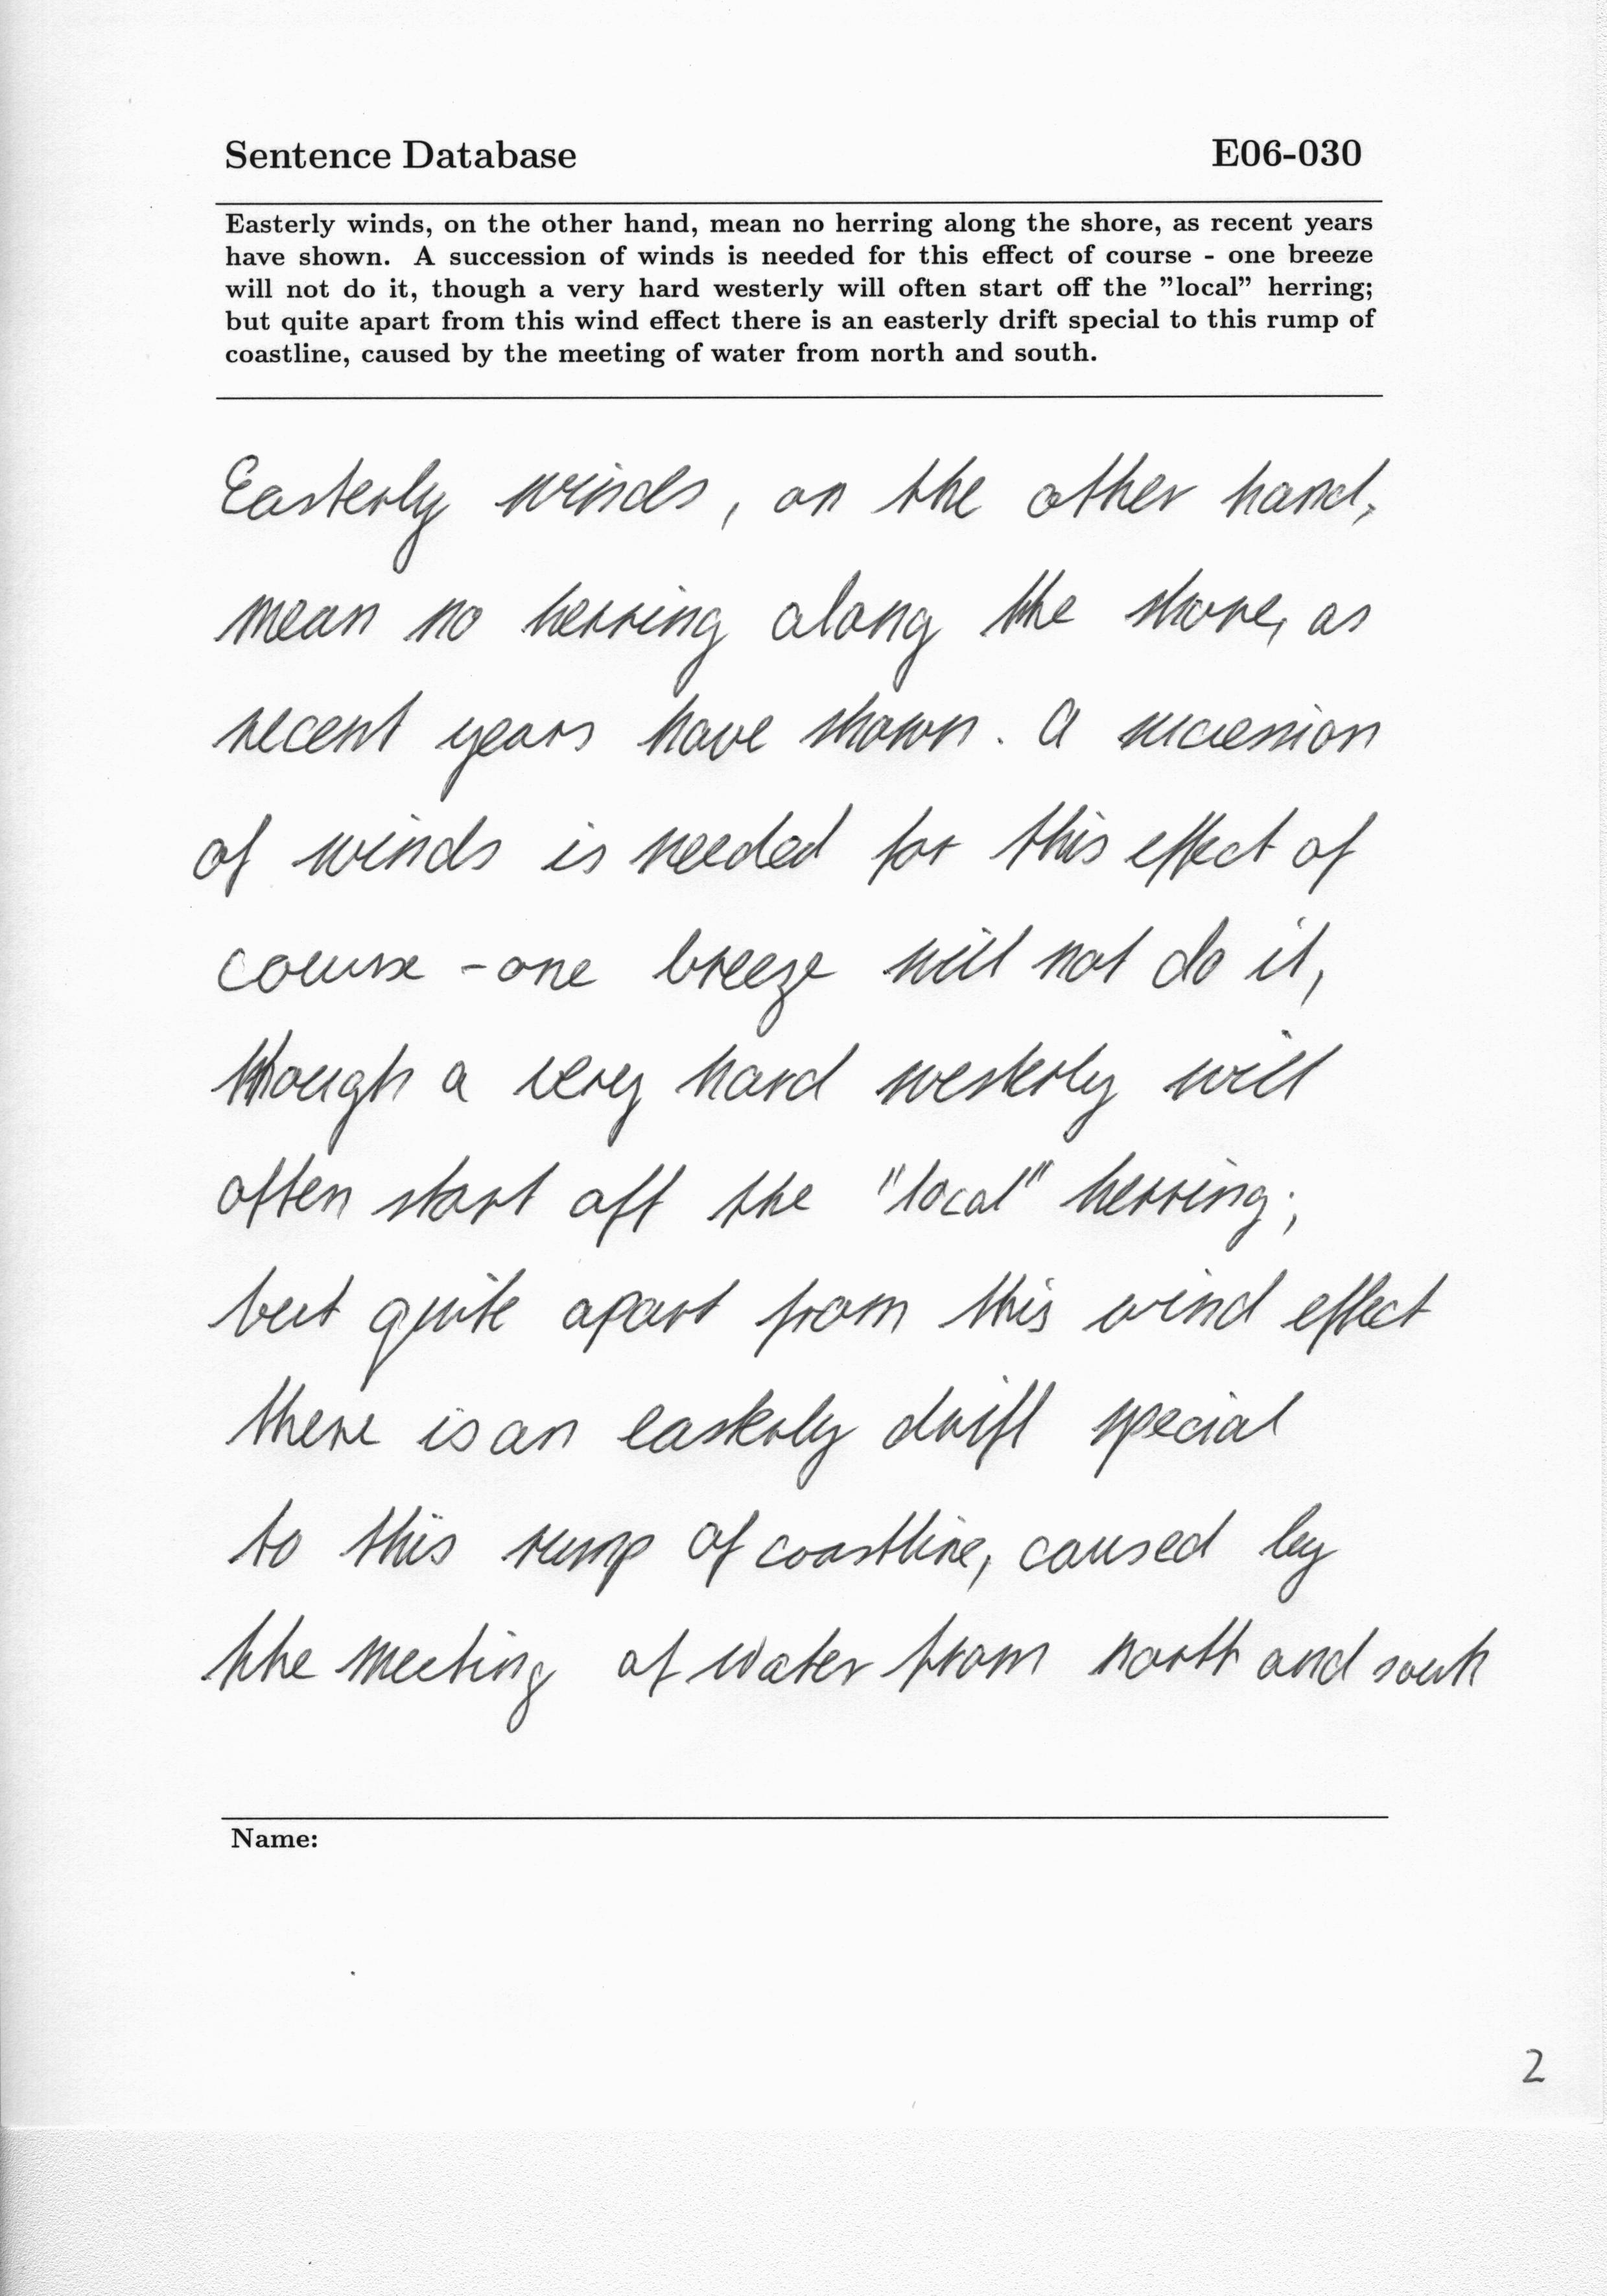 Sentence Database E06-030
Easterly winds, on the other hand, mean no herring along the shore, as recent years
have shown. A succession of winds is needed for this effect of course - one breeze
will not do it, though a very hard westerly will often start off the ”local” herring;
but quite apart from this wind effect there is an easterly drift special to this rump of
coastline, caused by the meeting of water from north and south.
Easterly winds, on the other hand,
mean no herring along the shore, as
recent years have shown. A succession
of winds is needed for this effect of
course - one breeze will not do it,
though a very hard westerly will
often start off the "local" herring;
but quite apart from this wind effect
there is an easterly drift special
to this rump of coastline, caused by
the meeting of water from north and south
Name:
2